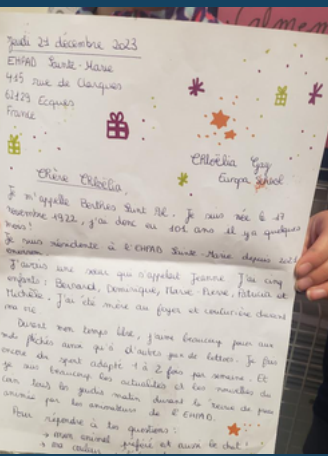 Jeudi 21 décembre 2023
EHPAD Sainte-Marie
415 rue de Clarques
62129 Ecques
France
Chloëlia Gay
Europa School
Chère Chloëlia
Je m'appelle Berthes Saint. Je suis née le 17
novembre 1922, j'ai donc eu 101 ans il y a quelques
mois!
Je suis résidente à l'EHPAD Sainte Marie depuis 2021
J'aurais une sœur qui s'appelait Jeanne. J'ai cinq
enfants: Bernard, Dominique, Marie-Pierre, Patricia et
Michèle. J'ai été mère au foyer et couturière durant
ma vie.
Durant mon temps libre, j'aime beaucoup jouer aux
mots fléchés ainsi qu'à d'autres jeux de lettres. Je fais
encore du sport adapté 1 à 2 fois par semaine. Et
je suis beaucoup les actualités et les nouvelles du
coin tous les jeudis matin durant la revue de presse
animée par les animateurs de l'EHPAD.
Pour répondre à tes questions:
→ mon animal préféré est aussi le chat!
→ ma couleur